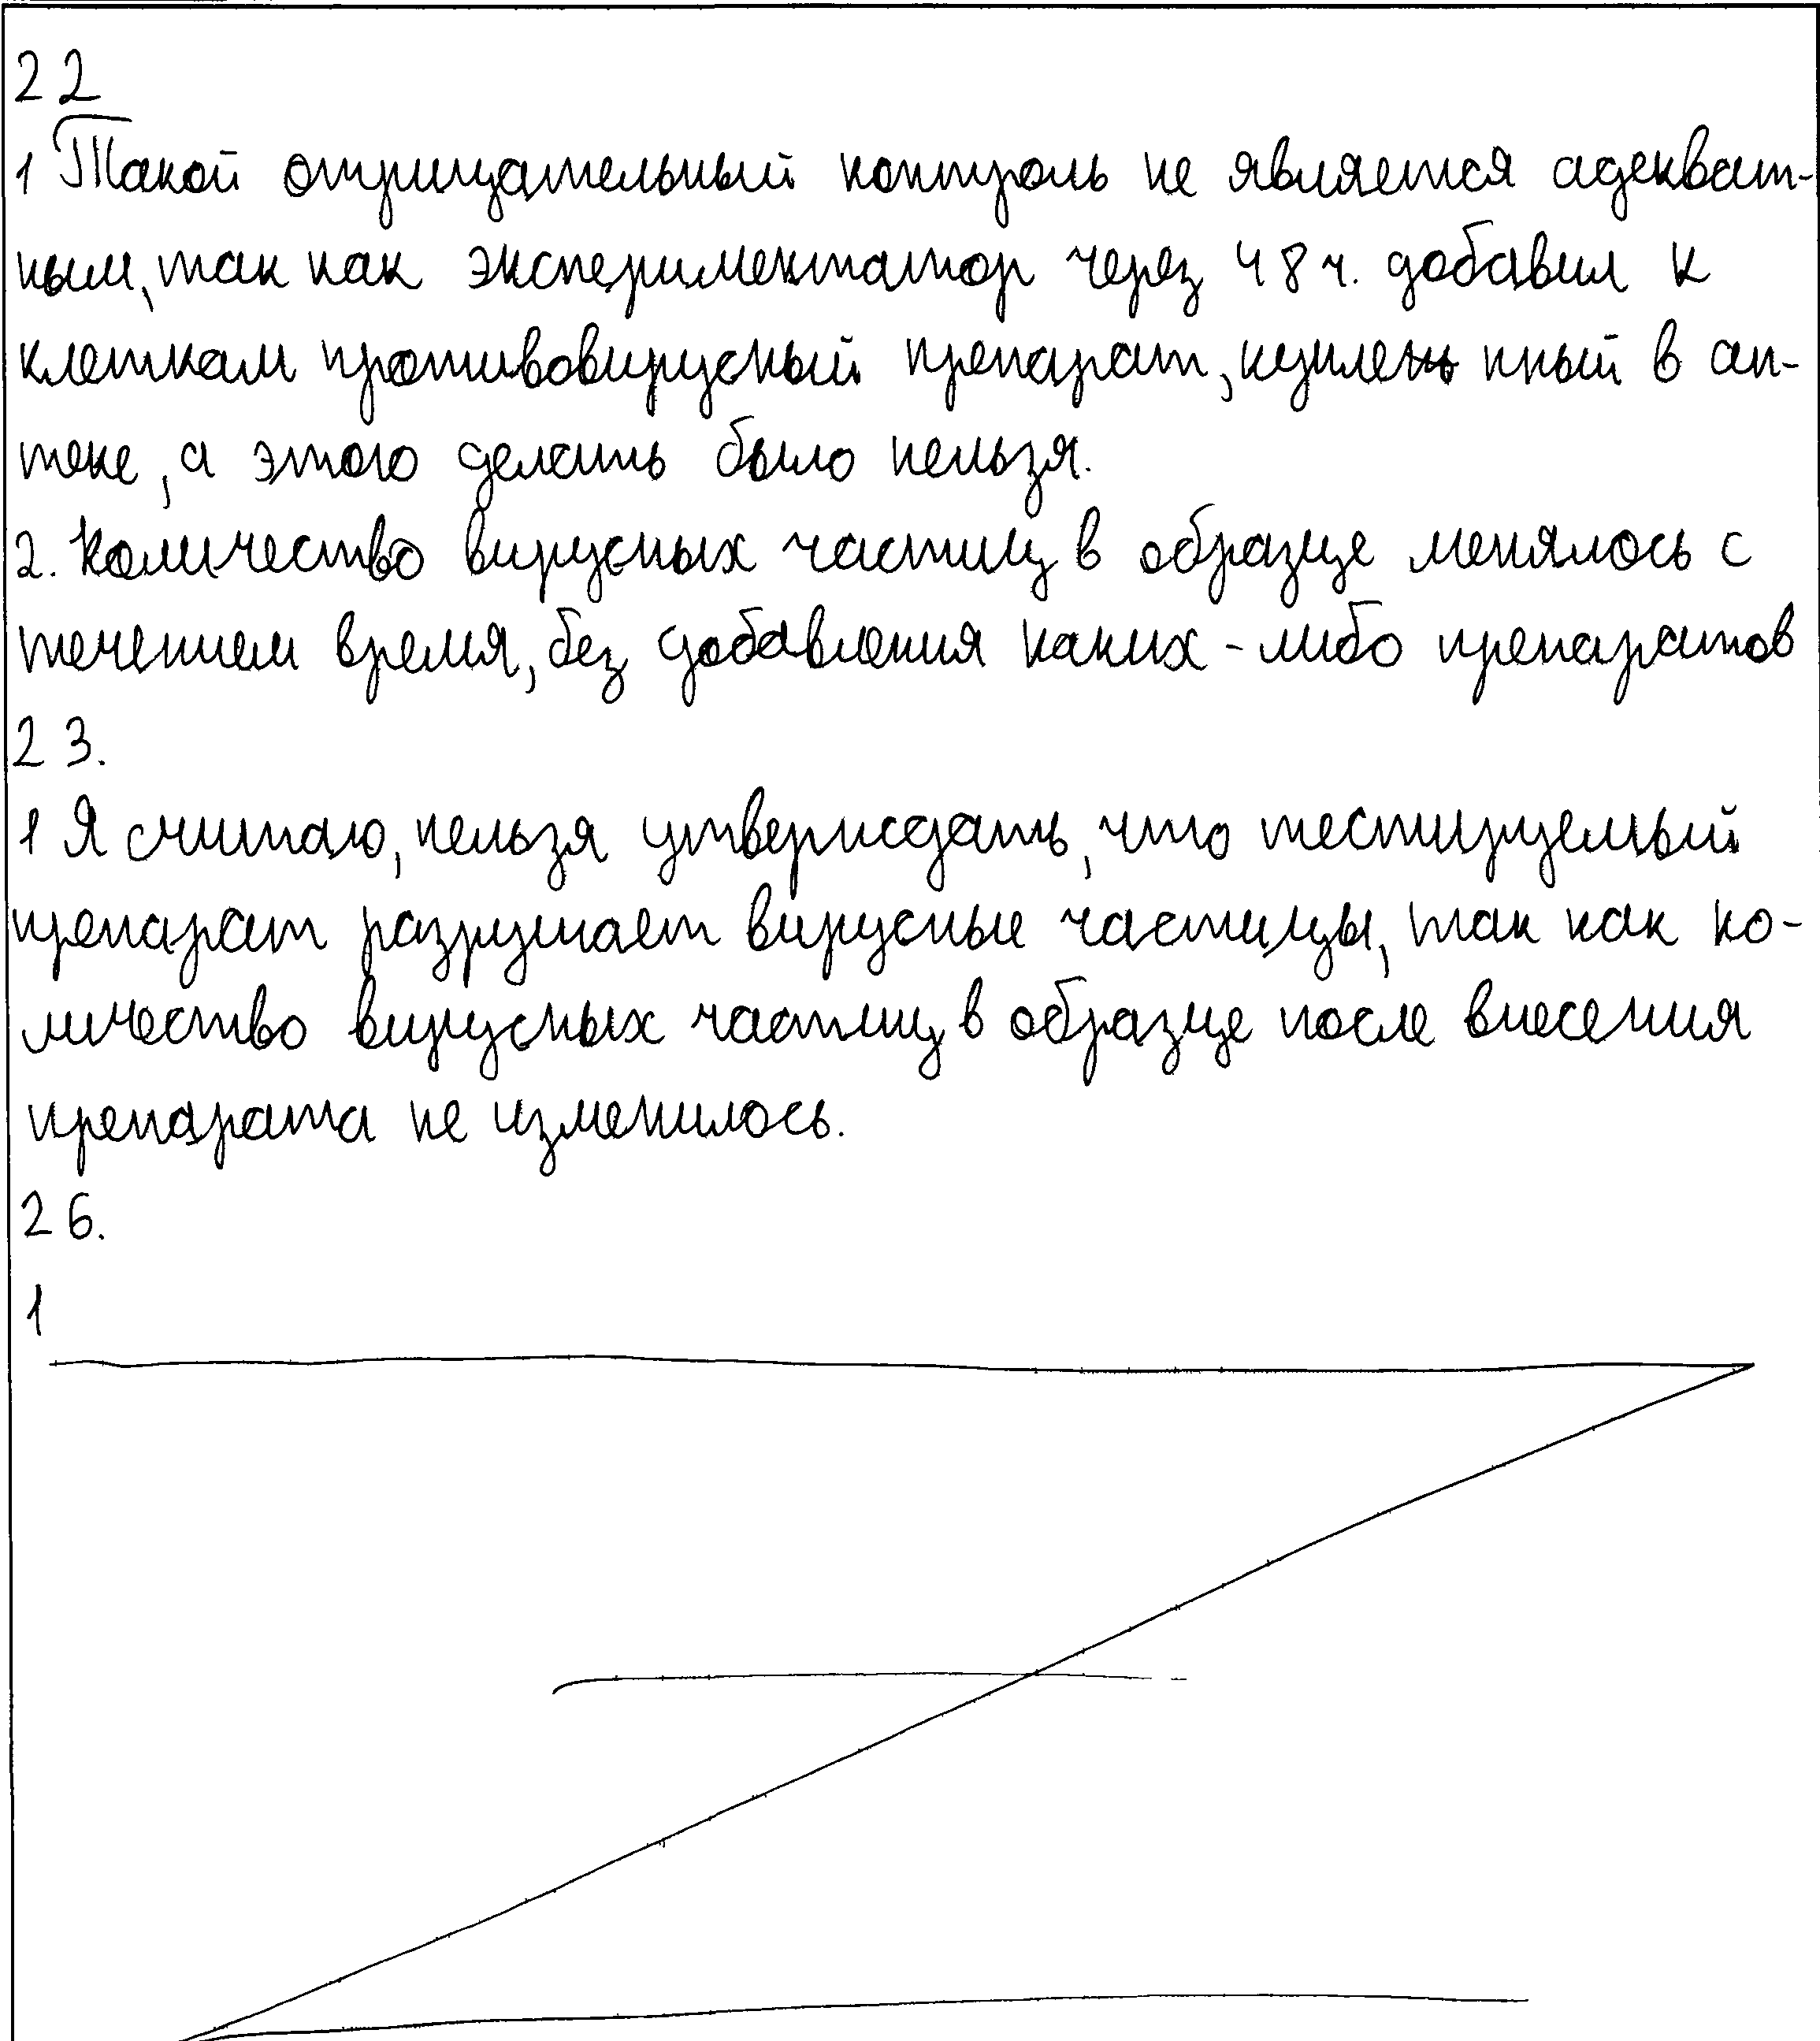 22
1 Такой отрицательный контроль не является адекват-
ным, так как экспериментатор через 48 ч. добавил к
клеткам противовирусный препарат, купленный в ап-
теке, а этого делать было нельзя.
2. Количество вирусных частиц в образце менялось с
течением время, без добавления каких-либо препаратов
23.
1 Я считаю, нельзя утверждать, что тестируемый
препарат разрушает вирусные частицы, так как ко-
личество вирусных частиц в образце после внесения
препарата не изменилось.
26.
1